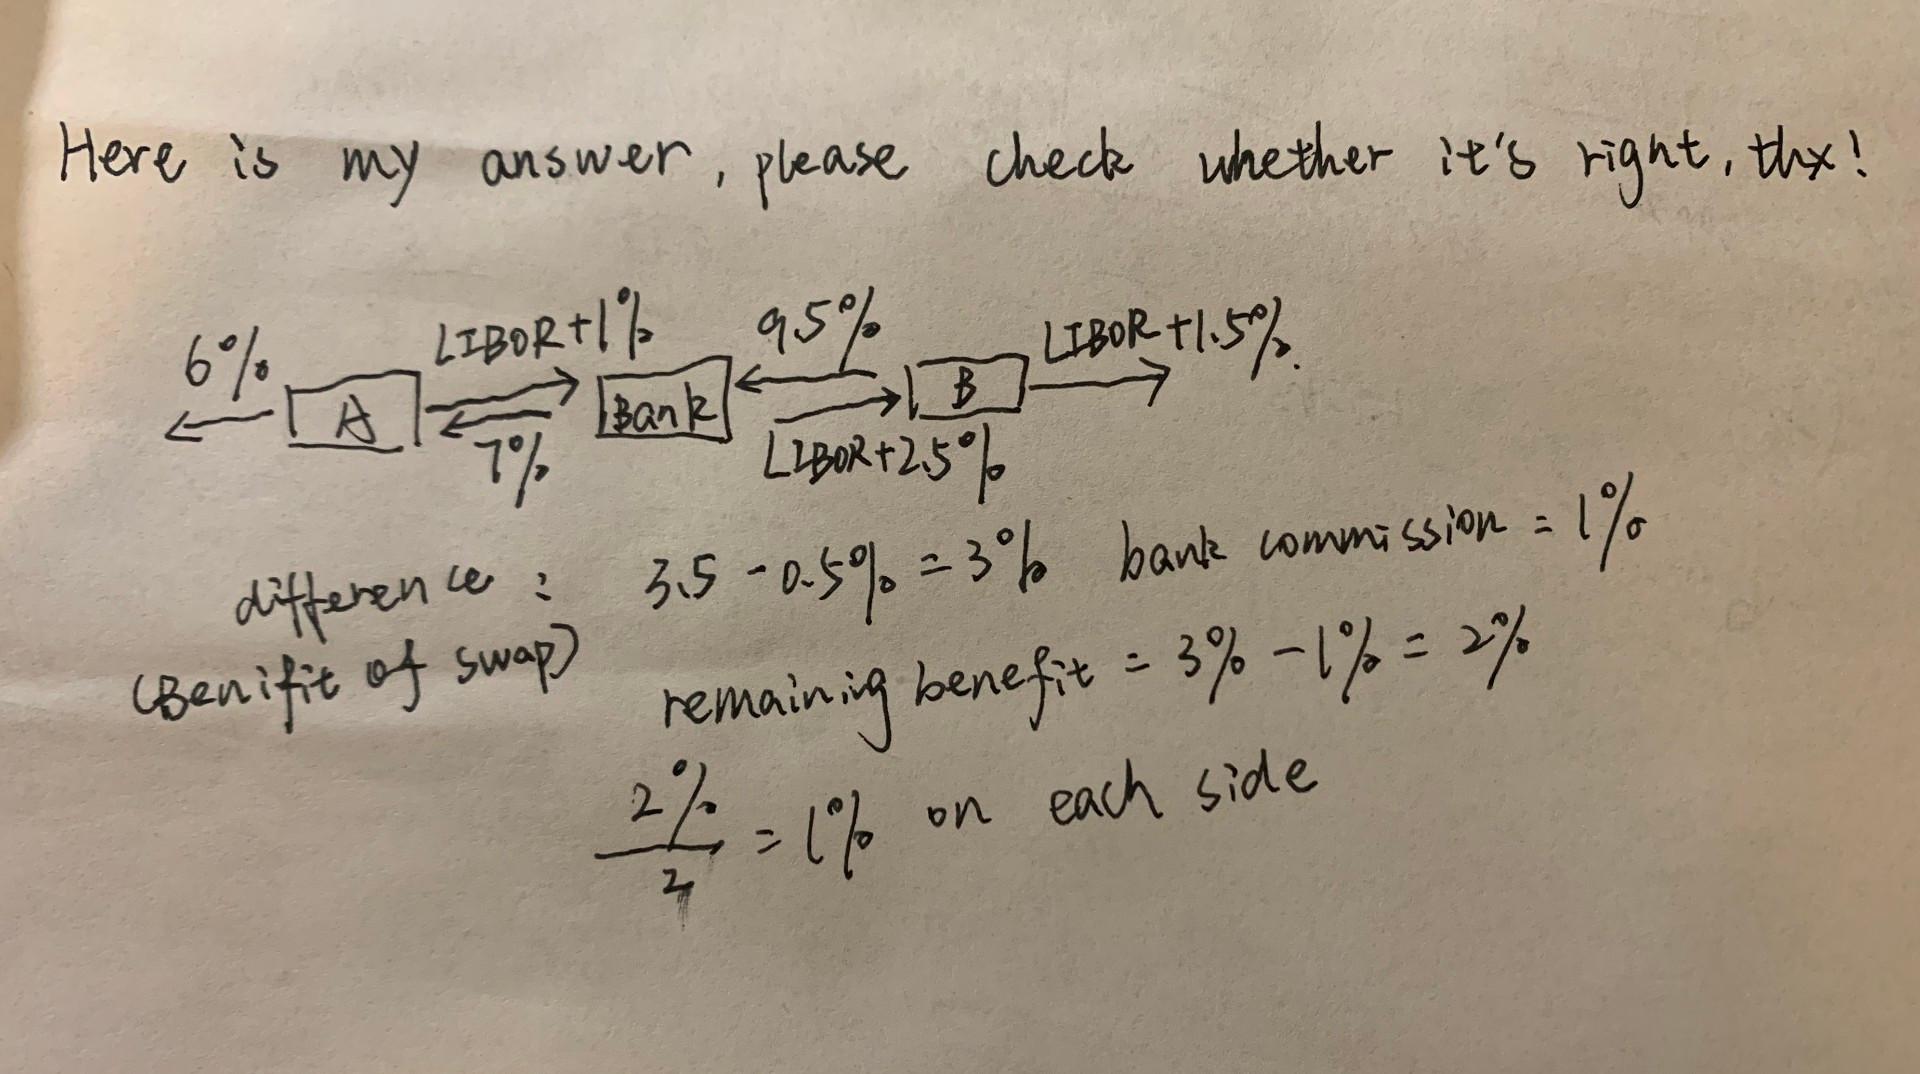 Here is my answer, please check whether it's right, thx!
6% LIBOR+1% 9.5% LIBOR+1.5%.
A Bank B
7% LIBOR+2.5%
difference : 3.5 - 0.5% = 3% bank commission = 1%
(Benifit of swap) remaining benefit = 3% - 1% = 2%
2%
= 1% on each side
2